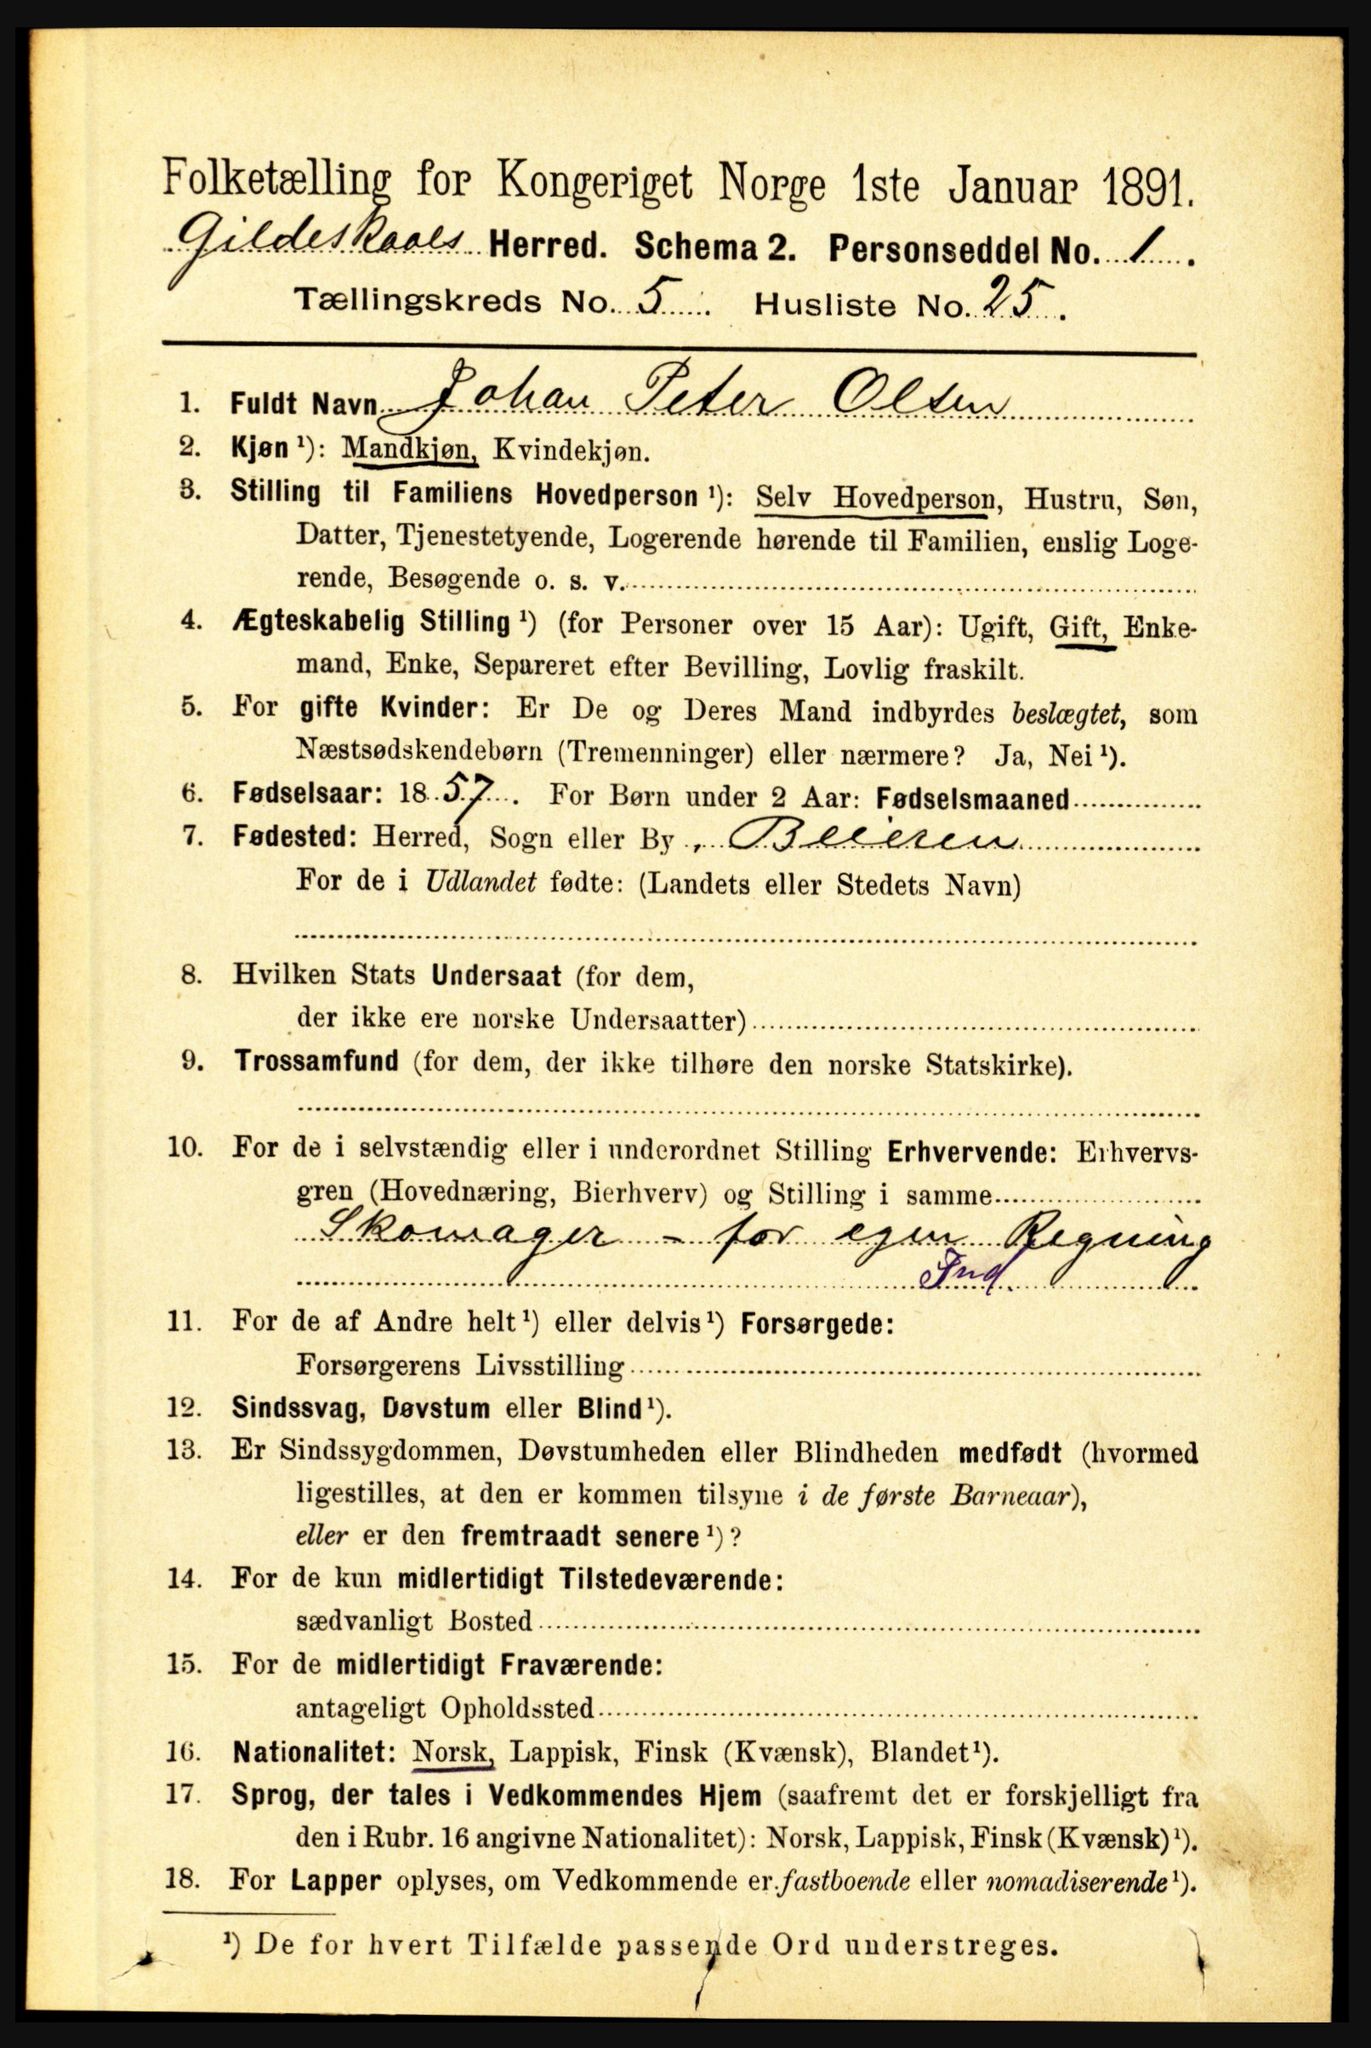 Folketælling for Kongeriget Norge 1ste Januar 1891.
Gildeskaals Herred. Schema 2. Personseddel No. 1.
Tællingskreds No. 5. Husliste No. 25.
1. Fuldt Navn Johan Peter Olsen
2. Kjøn¹): Mandkjøn, Kvindekjøn.
3. Stilling til Familiens Hovedperson¹): Selv Hovedperson, Hustru, Søn,
Datter, Tjenestetyende, Logerende hørende til Familien, enslig Loge-
rende, Besøgende o. s. v.
4. Ægteskabelig Stilling¹) (for Personer over 15 Aar): Ugift, Gift, Enke-
mand, Enke, Separeret efter Bevilling, Lovlig fraskilt.
5. For gifte Kvinder: Er De og Deres Mand indbyrdes beslægtet, som
Næstsødskendebørn (Tremenninger) eller nærmere? Ja, Nei¹).
6. Fødselsaar: 1857. For Børn under 2 Aar: Fødselsmaaned
7. Fødested: Herred, Sogn eller By, Beieren
For de i Udlandet fødte: (Landets eller Stedets Navn)
8. Hvilken Stats Undersaat (for dem,
der ikke ere norske Undersaatter)
9. Trossamfund (for dem, der ikke tilhøre den norske Statskirke).
10. For de i selvstændig eller i underordnet Stilling Erhvervende: Erhvervs-
gren (Hovednæring, Bierhverv) og Stilling i samme
Skomager - for egen Regning
Ind.
11. For de af Andre helt¹) eller delvis¹) Forsørgede:
Forsørgerens Livsstilling
12. Sindssvag, Døvstum eller Blind¹).
13. Er Sindssygdommen, Døvstumheden eller Blindheden medfødt (hvormed
ligestilles, at den er kommen tilsyne i de første Barneaar),
eller er den fremtraadt senere¹)?
14. For de kun midlertidigt Tilstedeværende:
sædvanligt Bosted
15. For de midlertidigt Fraværende:
antageligt Opholdssted
16. Nationalitet: Norsk, Lappisk, Finsk (Kvænsk), Blandet¹).
17. Sprog, der tales i Vedkommendes Hjem (saafremt det er forskjelligt fra
den i Rubr. 16 angivne Nationalitet): Norsk, Lappisk, Finsk (Kvænsk)¹).
18. For Lapper oplyses, om Vedkommende er fastboende eller nomadiserende¹).
¹) De for hvert Tilfælde passende Ord understreges.